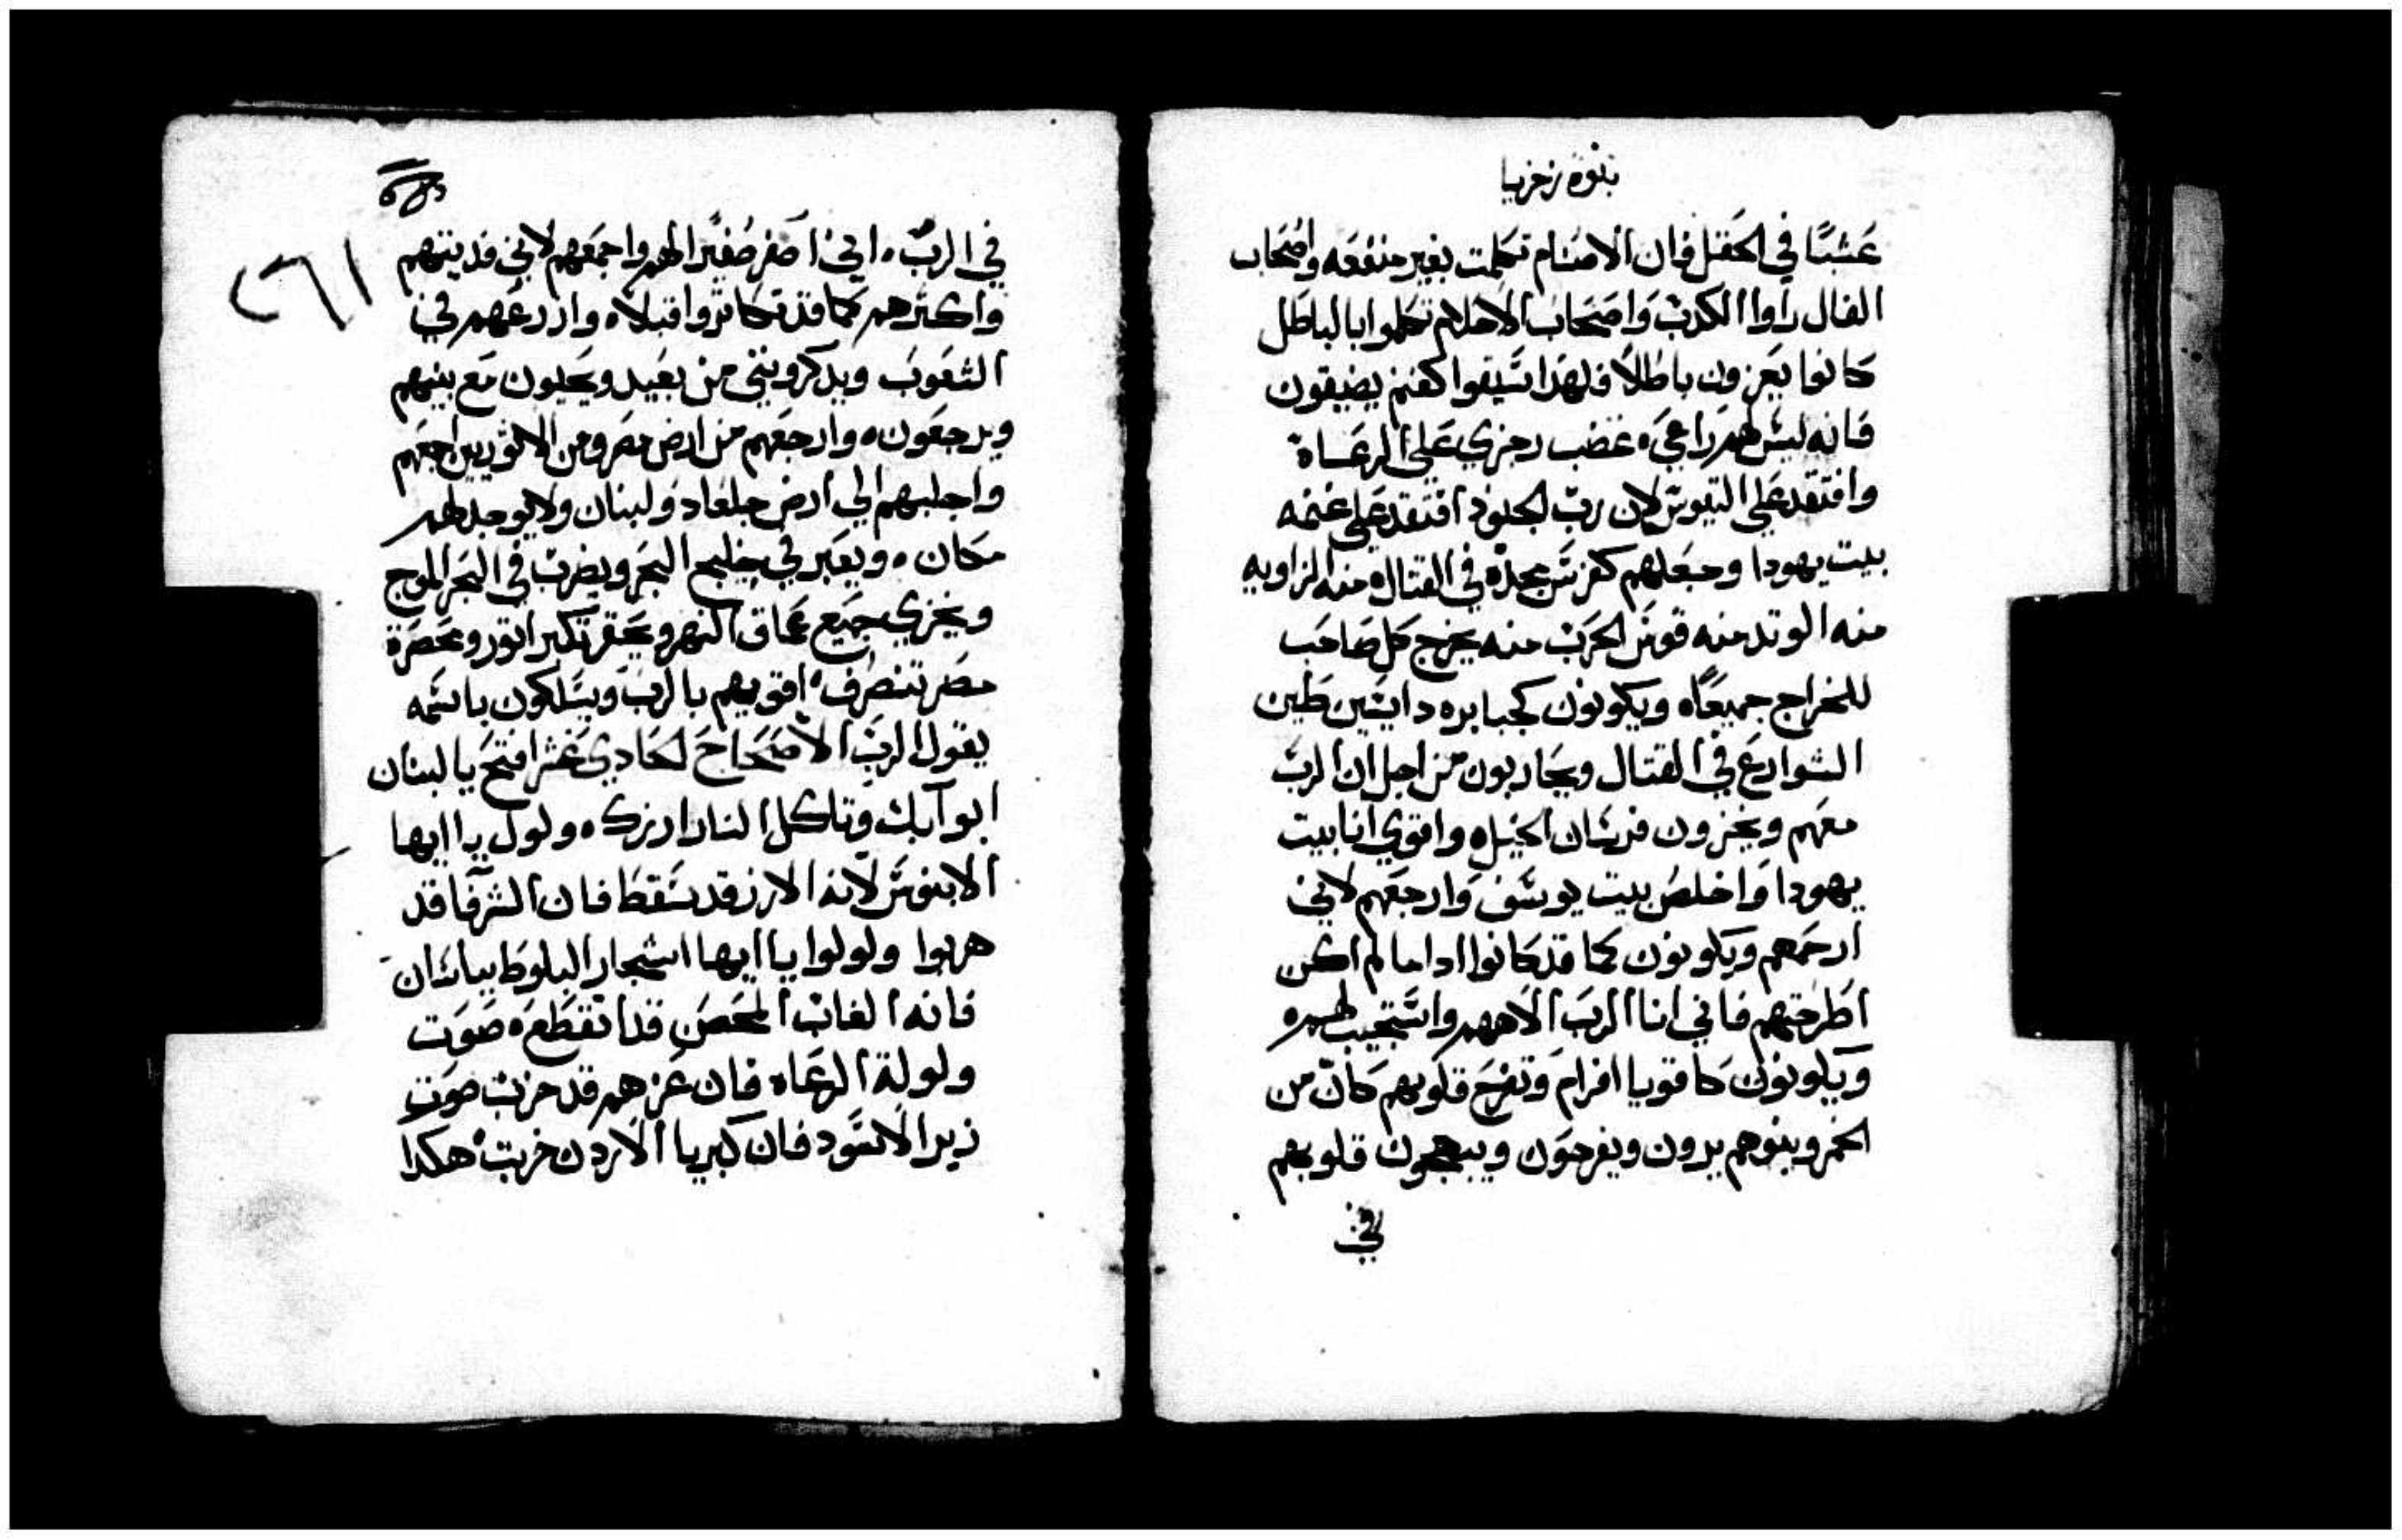 نبوة زخريا
عَشبًا في الحَقل فان الاصنام تكلمت بغير منفعَه واصُحَاب
الفال راوا الكدب وَاصحَاب الاحلام تكلموا بالباطل
كانوا يعَزون باطلاً فلهدا سَيقوا كغنم يضيقون
فانه ليسَ لهم رَاعيَ، غضب رجزي عَلى الرعَاة
وافتقد عَلى التيوسَ لان ربّ الجنود افتقد عَلى غنمه
بيت يهودا وجعَلهم كفرسَ مجدة في القتال، منه الزاويه
منه الوتد منه قوسَ الحَرَب منه يخرج كل صَاحَب
للخراج جميعًا، ويكونون كجبابره دايسَين طين
الشوارعَ في القتال ويحَاربون من اجل ان الربّ
معَهم ويخزون فرسَان الخيل، واقوي انا بيت
يهودا وَاخلصُ بيت يوسَف وَارجعَهم لانني
ارحَمهم ويكونون كما قد كانوا ادا ما لم اكن
اطَرحَتهم فاني انا الربَ الاههم واسَتجيب لهم،
وَيكونون كاقويا افرام وَتفرح قلوبهم كان من
الخمر وبنوهم يرون ويفرحَون ويبتهجون قلوبهم
في
٢٦١
في الربّ، اني اصَفر صُفيرًا لهم واجمَعَهم لانني فديتهم
واكترهم كما قد تكاتروا قبلاً، وازرعَهم في
الشعَوب ويدكرونني من بعَيد ويحَيون مَع بنيهم
ويرجعَون، وارجعَهم من ارض مصر ومن الاثوريين اجمعَهم
واجلبهم الي ارض جلعاد ولبنان ولا يوجد لهم
مكان، ويعَبر في خليج البحَر ويضرب في البحَر الموج
ويخزي جميَع عماق النهر ويحَقر تكبر اتور وعَصَرة
مصَر تنصرف، اقويهم بالربَ ويسَلكون باسَمه
يقول الربَ الاصَحَاحَ الحَادي عَشر افتحَ يا لبنان
ابوابك وتاكل النار ارزك، ولول يا ايها
الابنوسَ لانه الارز قد سَقط فان الشرفا قد
هربوا ولولوا يا ايها اشجار البلوط بباسَان
فانه الغاب المحَصَن قد انقطَعَ، صَوَت
ولولة الرعَاه فان عَزهم قد خربت صَوَت
زير الاسَود فان كبريا الاردن خربت هكدا